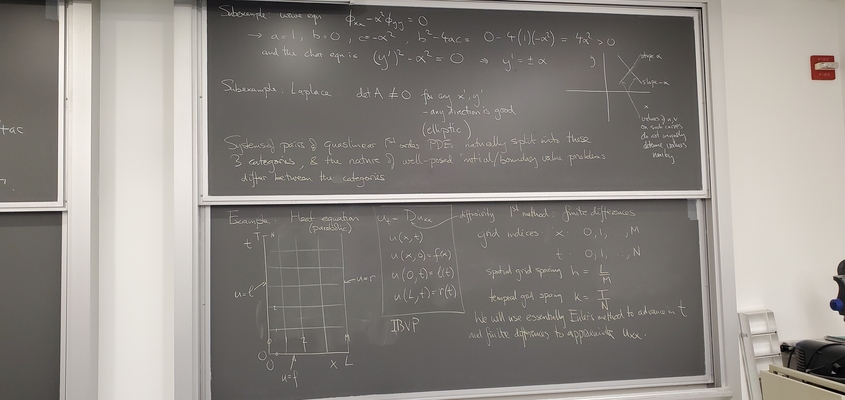 Subexample: wave eqn φxx - α²φyy = 0
→ a=1, b=0, c=-α², b²-4ac = 0-4(1)(-α²) = 4α² > 0
and the char eqn is (y')² - α² = 0 ⇒ y' = ± α
y
slope α
slope -α
x
values of u, v
on such curves
do not uniquely
determine values
nearby
Subexample: Laplace det A ≠ 0 for any x', y'
- any direction is good
(elliptic)
Systems of pairs of quasilinear 1st order PDEs naturally split into these
3 categories, & the nature of well-posed initial/boundary value problems
differ between the categories
+ac
Example: Heat equation
(parabolic)
ut = Duxx diffusivity
u(x,t)
u(x,0)=f(x)
u(0,t)=l(t)
u(L,t)=r(t)
IBVP
t T N
u=l
u=r
0
0
x L
u=f
1st method: finite differences
grid indices x: 0,1, ,M
t: 0,1, ..., N
spatial grid spacing h = L/M
temporal grid spacing k = T/N
We will use essentially Euler's method to advance in t
and finite differences to approximate uxx.